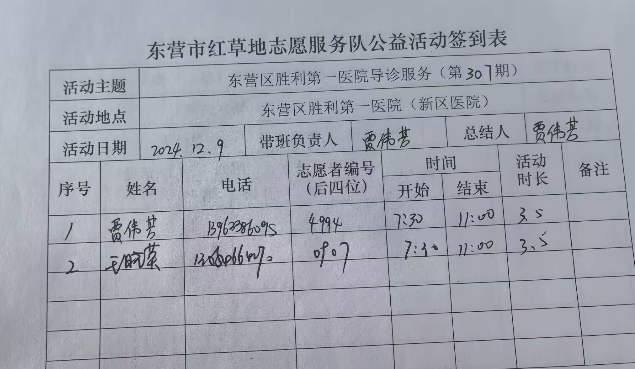 东营市红草地志愿服务队公益活动签到表
活动主题 东营区胜利第一医院导诊服务（第307期）
活动地点 东营区胜利第一医院（新区医院）
活动日期 2024.12.9 带班负责人 贾伟芸 总结人 贾伟芸
序号 姓名 电话 志愿者编号（后四位） 时间 开始 结束 活动时长 备注
1 贾伟芸 4994 7:30 11:00 3.5
2 0907 7:30 11:00 3.5